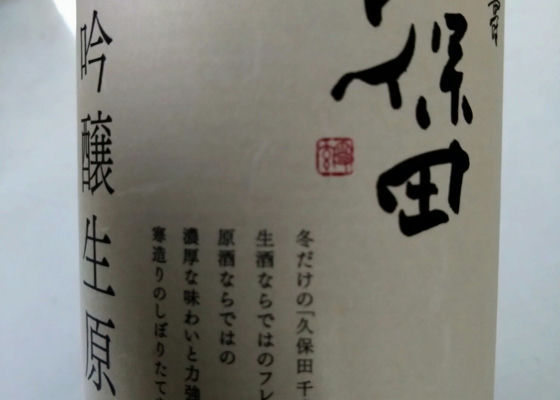 久保田
冬だけの「久保田 千
生酒ならではのフレ
原酒ならではの
濃厚な味わいと力強
寒造りのしぼりたて
吟醸生原